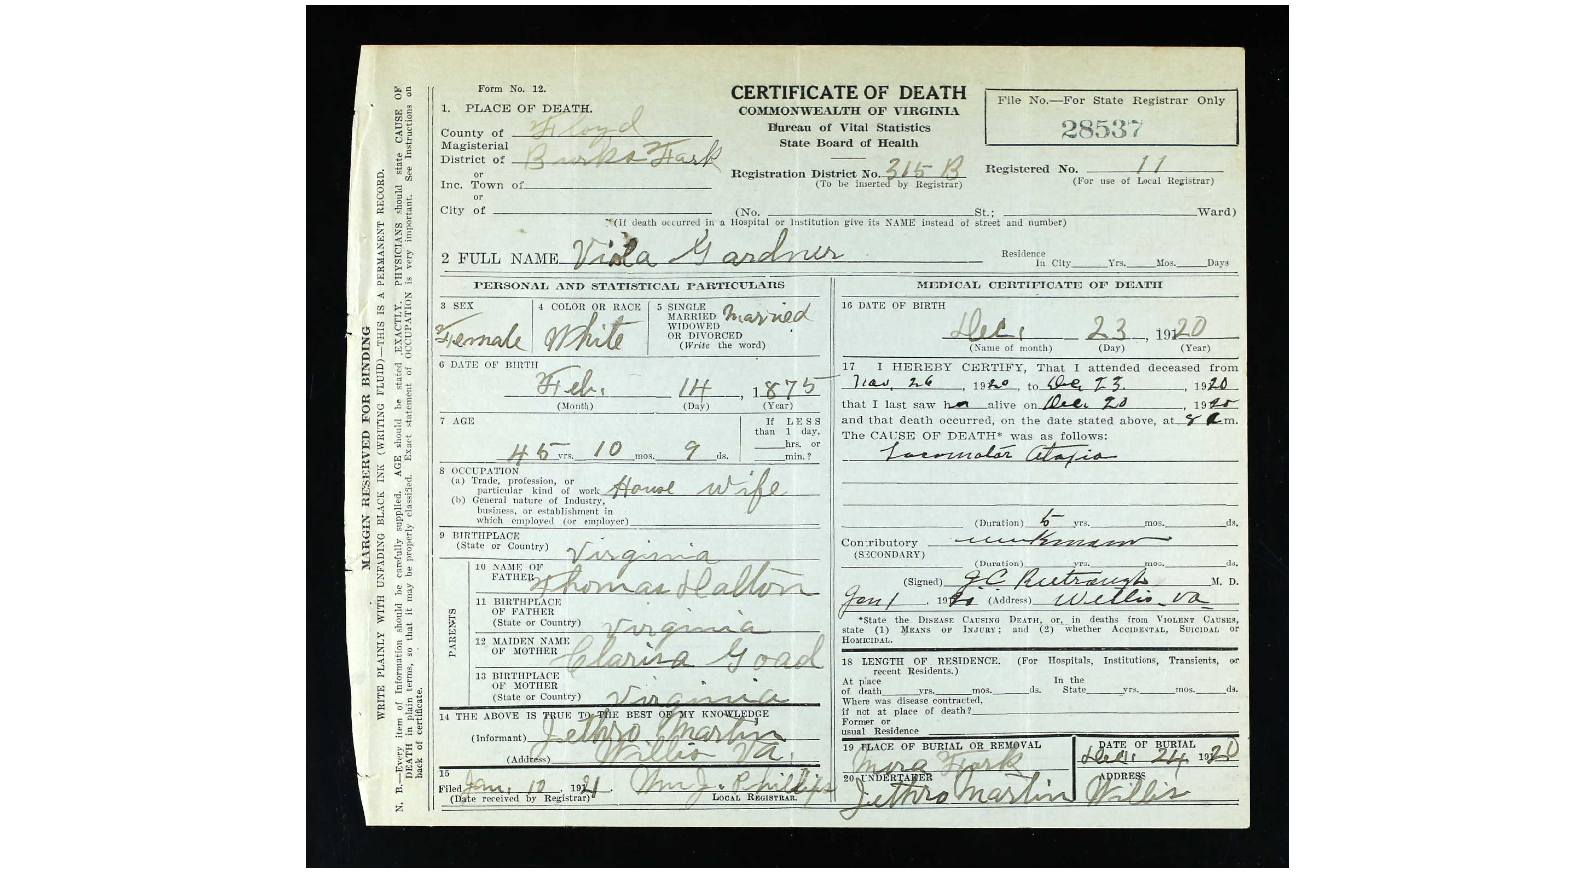 MARGIN RESERVED FOR BINDING
WRITE PLAINLY WITH UNFADING BLACK INK (WRITING FLUID)—THIS IS A PERMANENT RECORD.
N. B.—Every item of Information should be carefully supplied. AGE should be stated EXACTLY. PHYSICIANS should state CAUSE OF
DEATH in plain terms, so that it may be properly classified. Exact statement of OCCUPATION is very important. See Instructions on
back of certificate.
Form No. 12.
1. PLACE OF DEATH.
County of Floyd
Magisterial
District of Burks Fork
or
Inc. Town of
or
City of
CERTIFICATE OF DEATH
COMMONWEALTH OF VIRGINIA
Bureau of Vital Statistics
State Board of Health
Registration District No. 315 B
(To be inserted by Registrar)
File No.—For State Registrar Only
28537
Registered No. 11
(For use of Local Registrar)
(No. St.; Ward)
(If death occurred in a Hospital or Institution give its NAME instead of street and number)
2 FULL NAME Viola Gardner
Residence
In City Yrs. Mos. Days
PERSONAL AND STATISTICAL PARTICULARS
3 SEX
Female
4 COLOR OR RACE
White
5 SINGLE
MARRIED
WIDOWED
OR DIVORCED
(Write the word)
Married
6 DATE OF BIRTH
Feb. 14, 1875
(Month) (Day) (Year)
7 AGE
45 yrs. 10 mos. 9 ds.
If LESS
than 1 day,
hrs. or
min.?
8 OCCUPATION
(a) Trade, profession, or
particular kind of work House wife
(b) General nature of Industry,
business, or establishment in
which employed (or employer)
9 BIRTHPLACE
(State or Country) Virginia
PARENTS
10 NAME OF
FATHER Thomas Dalton
11 BIRTHPLACE
OF FATHER
(State or Country) Virginia
12 MAIDEN NAME
OF MOTHER Clarisa Goad
13 BIRTHPLACE
OF MOTHER
(State or Country) Virginia
14 THE ABOVE IS TRUE TO THE BEST OF MY KNOWLEDGE
(Informant) Jethro Martin
(Address) Willis Va.
15
Filed Jan. 10, 1921 Wm J. Phillips
(Date received by Registrar) LOCAL REGISTRAR.
MEDICAL CERTIFICATE OF DEATH
16 DATE OF BIRTH
Dec. 23, 1920
(Name of month) (Day) (Year)
17 I HEREBY CERTIFY, That I attended deceased from
Nov. 26, 1920, to Dec 23., 1920
that I last saw her alive on Dec. 20, 1920
and that death occurred, on the date stated above, at 8 a m.
The CAUSE OF DEATH* was as follows:
Locomotor Ataxia
(Duration) 5 yrs. mos. ds.
Contributory unknown
(SECONDARY)
(Duration) yrs. mos. ds.
(Signed) J.C. M. D.
Jan 1, 19 (Address) Willis Va
*State the DISEASE CAUSING DEATH, or, in deaths from VIOLENT CAUSES,
state (1) MEANS OF INJURY; and (2) whether ACCIDENTAL, SUICIDAL or
HOMICIDAL.
18 LENGTH OF RESIDENCE. (For Hospitals, Institutions, Transients, or
recent Residents.)
At place In the
of death yrs. mos. ds. State yrs. mos. ds.
Where was disease contracted,
if not at place of death?
Former or
usual Residence
19 PLACE OF BURIAL OR REMOVAL
Mira Fork
DATE OF BURIAL
Dec. 24, 1920
20 UNDERTAKER
Jethro Martin
ADDRESS
Willis